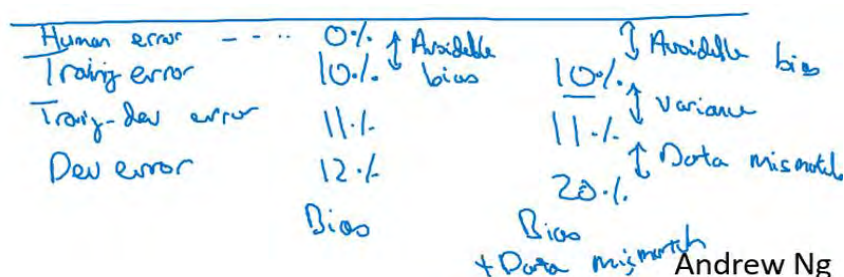 Human error - - - . . 0% ↕ Avoidable bias ↕ Avoidable bias
Training error 10% 10% ↕ Variance
Training-dev error 11% 11% ↕ Data mismatch
Dev error 12% 20%
Bias Bias
+ Data mismatch
Andrew Ng